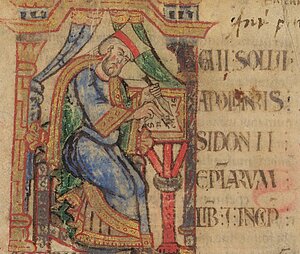 GAII SOLLII
APOLINARIS
SIDONII
EPLARVM
LIB : I : INCIP